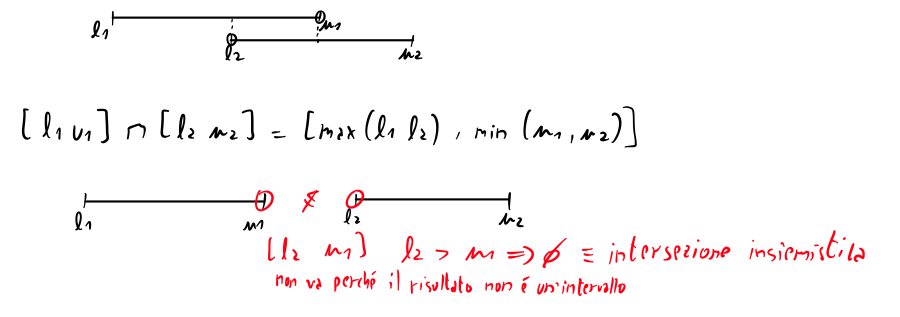 l1 u1
l2 u2
[l1 u1] ∩ [l2 u2] = [max(l1 l2), min(u1, u2)]
l1 u1 l2 u2
[l2 u1] l2 > u1 => ∅ ≡ intersezione insiemistica
non va perché il risultato non é un'intervallo